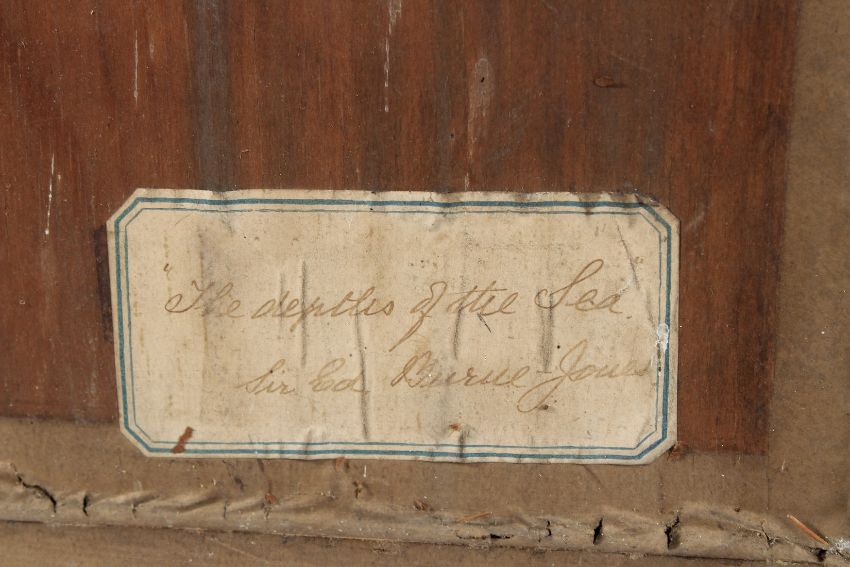 "The depths of the Sea"
Sir Ed. Burne Jones